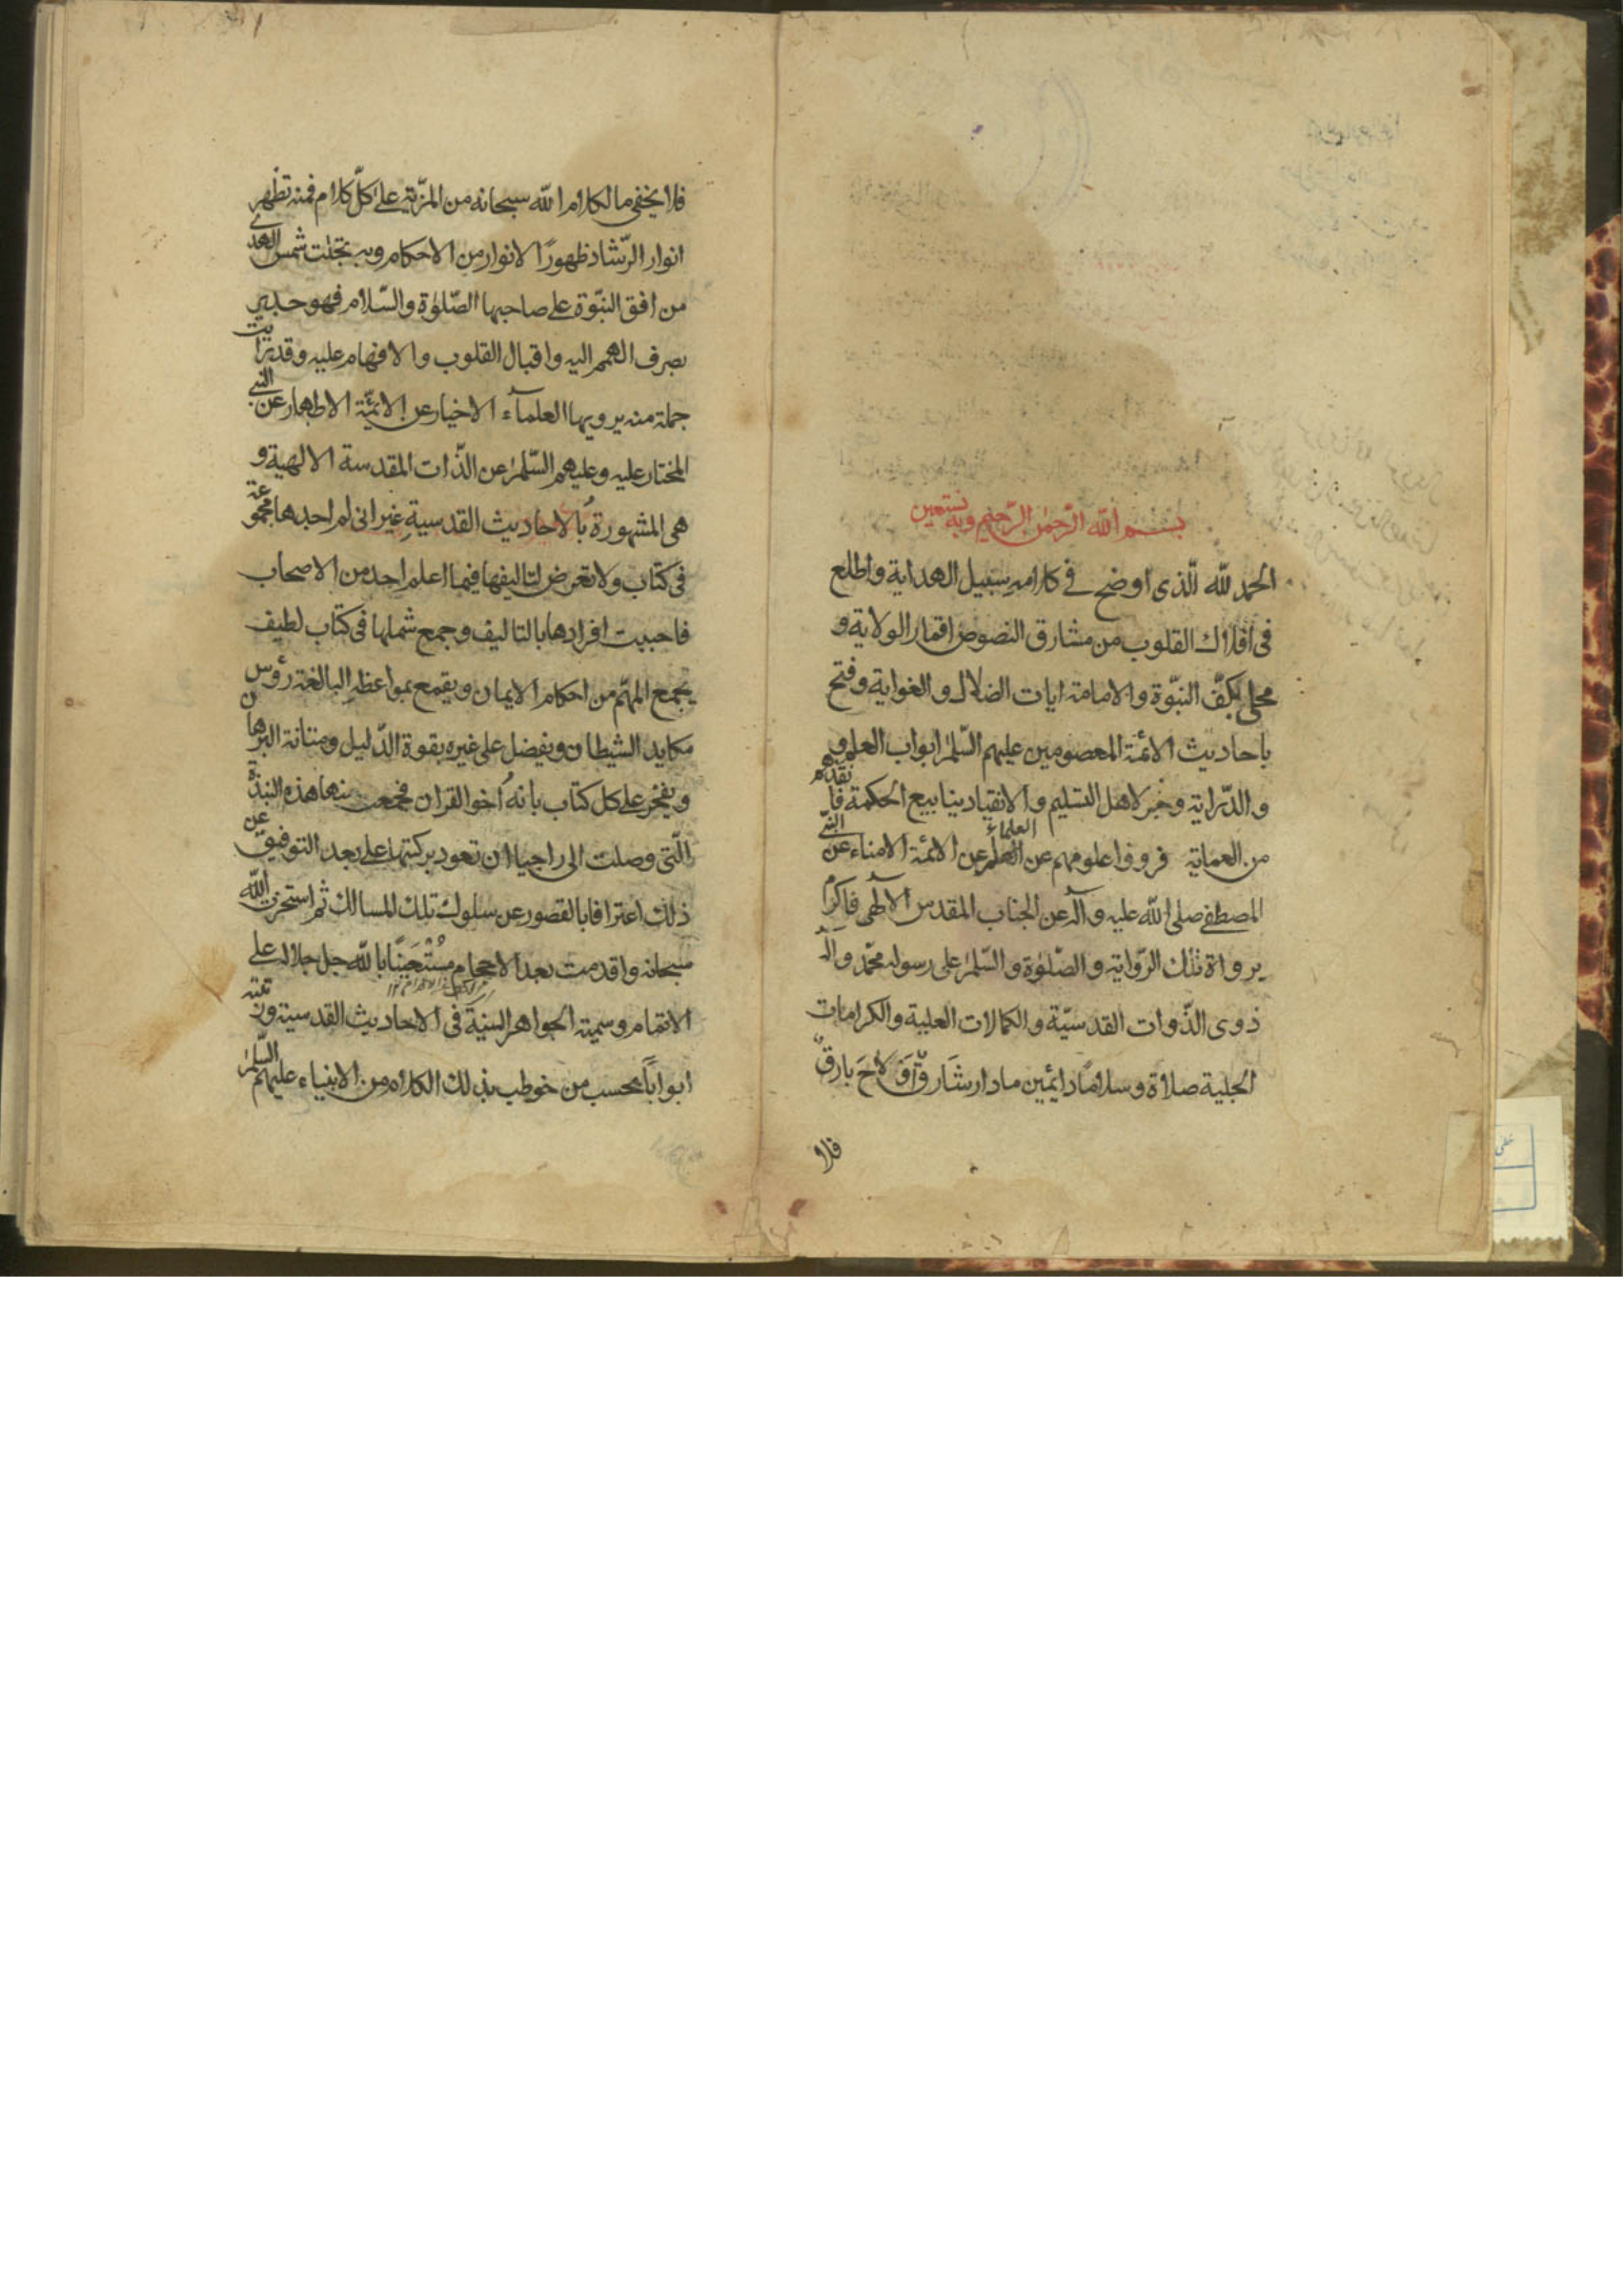 بسم الله الرحمن الرحيم وبه نستعين
الحمد لله الّذى اوضح فى كلامه سبيل الهداية واطلع
فى افلاك القلوب من مشارق النصوص اقمار الولاية و
محى بكفّ النبّوة والامامة ايات الضلال والغواية وفتح
باحاديث الائمة المعصومين عليهم السّلم ابواب العلم
و الدّراية وفجر لاهل التسليم والانقياد ينابيع الحكمة
من العماية فرووا علومهم عن العلماء عن الائمة الامناء عن النبى
المصطفى صلى الله عليه وآله عن الجناب المقدس الآلهى فاكرم
برواة تلك الرّواية والصّلوة والسّلم على رسوله محمّد وآله
ذوى الذّوات القدسيّة والكمالات العلية والكرامات
الجلية صلاة وسلاما دائمين مادار شارق ولاح بارق
فلا
فلا يخفى ما لكلام الله سبحانه من المزّية على كلّ كلام فمنه تظهر
انوار الرّشاد ظهورًا لانوار من الاحكام وبه تجلت شمس الهدى
من افق النبّوة على صاحبها الصّلوة والسّلام فهو حدير
بصرف الهمم اليه واقبال القلوب والافهام عليه وقد رايت
جملة منه يرويها العلمآء الاخيار عن الائمّة الاطهار عن النبى
المختار عليه وعليهم السّلم عن الذّات المقدسة الالهية و
هى المشهورة بالاحاديث القدسية غير انى لم اجدها مجموعة
فى كتاب ولا تعرض لتاليفها فيما اعلم احد من الاصحاب
فاحببت افرادها بالتاليف وجمع شملها فى كتاب لطيف
يجمع المهّم من احكام الايمان ويقمع بمواعظه البالغة رؤس
مكايد الشيطان ويفضل على غيره بقوة الدّليل ومتانة البرهان
ويفخر على كل كتاب بانه اخو القران فجمعت منها هذه النبذة
الّتى وصلت الى راجيا ان تعود بركتها على بعد التوفيق عن
ذلك اعترافا بالقصور عن سلوك تلك المسالك ثم استخرت الله
سبحانه واقدمت بعد الاحجام بالله جل جلاله على
الاتمام وسميته الجواهر السنية فى الاحاديث القدسية ورتبته
ابوابًا بحسب من خوطب بذلك الكلام من الانبياء عليهم السّلم